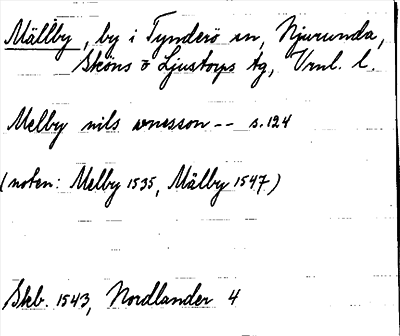 Mällby, by i Tynderö sn, Njurunda,
Sköns & Ljustorps tg, Vrnl. l.
Melby nils onesson -- s. 124
(noten: Melby 1535, Mälby 1547)
Skb. 1543, Nordlander 4